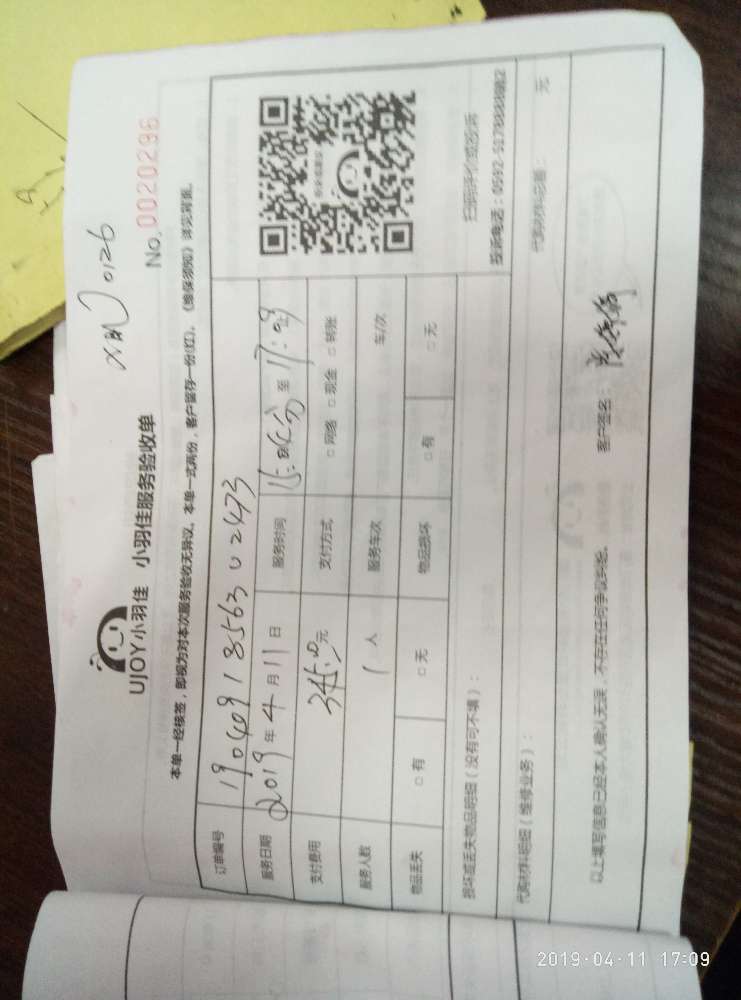 0126
No. 0020296
UJOY小羽佳 小羽佳服务验收单
本单一经核签，即视为对本次服务验收无异议。本单一式两份，客户留存一份(红)。《维保须知》详见背面。
订单编号 190409185630 2473
服务日期 2019年4月11日 服务时间 至 17:09
支付费用 元 支付方式 □网络 □现金 □转账
服务人数 1 人 服务车次 车/次
物品丢失 □有 □无 物品损坏 □有 □无
扫码评价或投诉
投诉电话：0592-5178888转2
损坏或丢失物品明细（没有可不填）：
代购材料明细（维修业务）： 代购材料总额： 元
以上填写信息已经本人确认无误，不存在任何争议纠纷。 客户签名：
2019-04-11 17:09